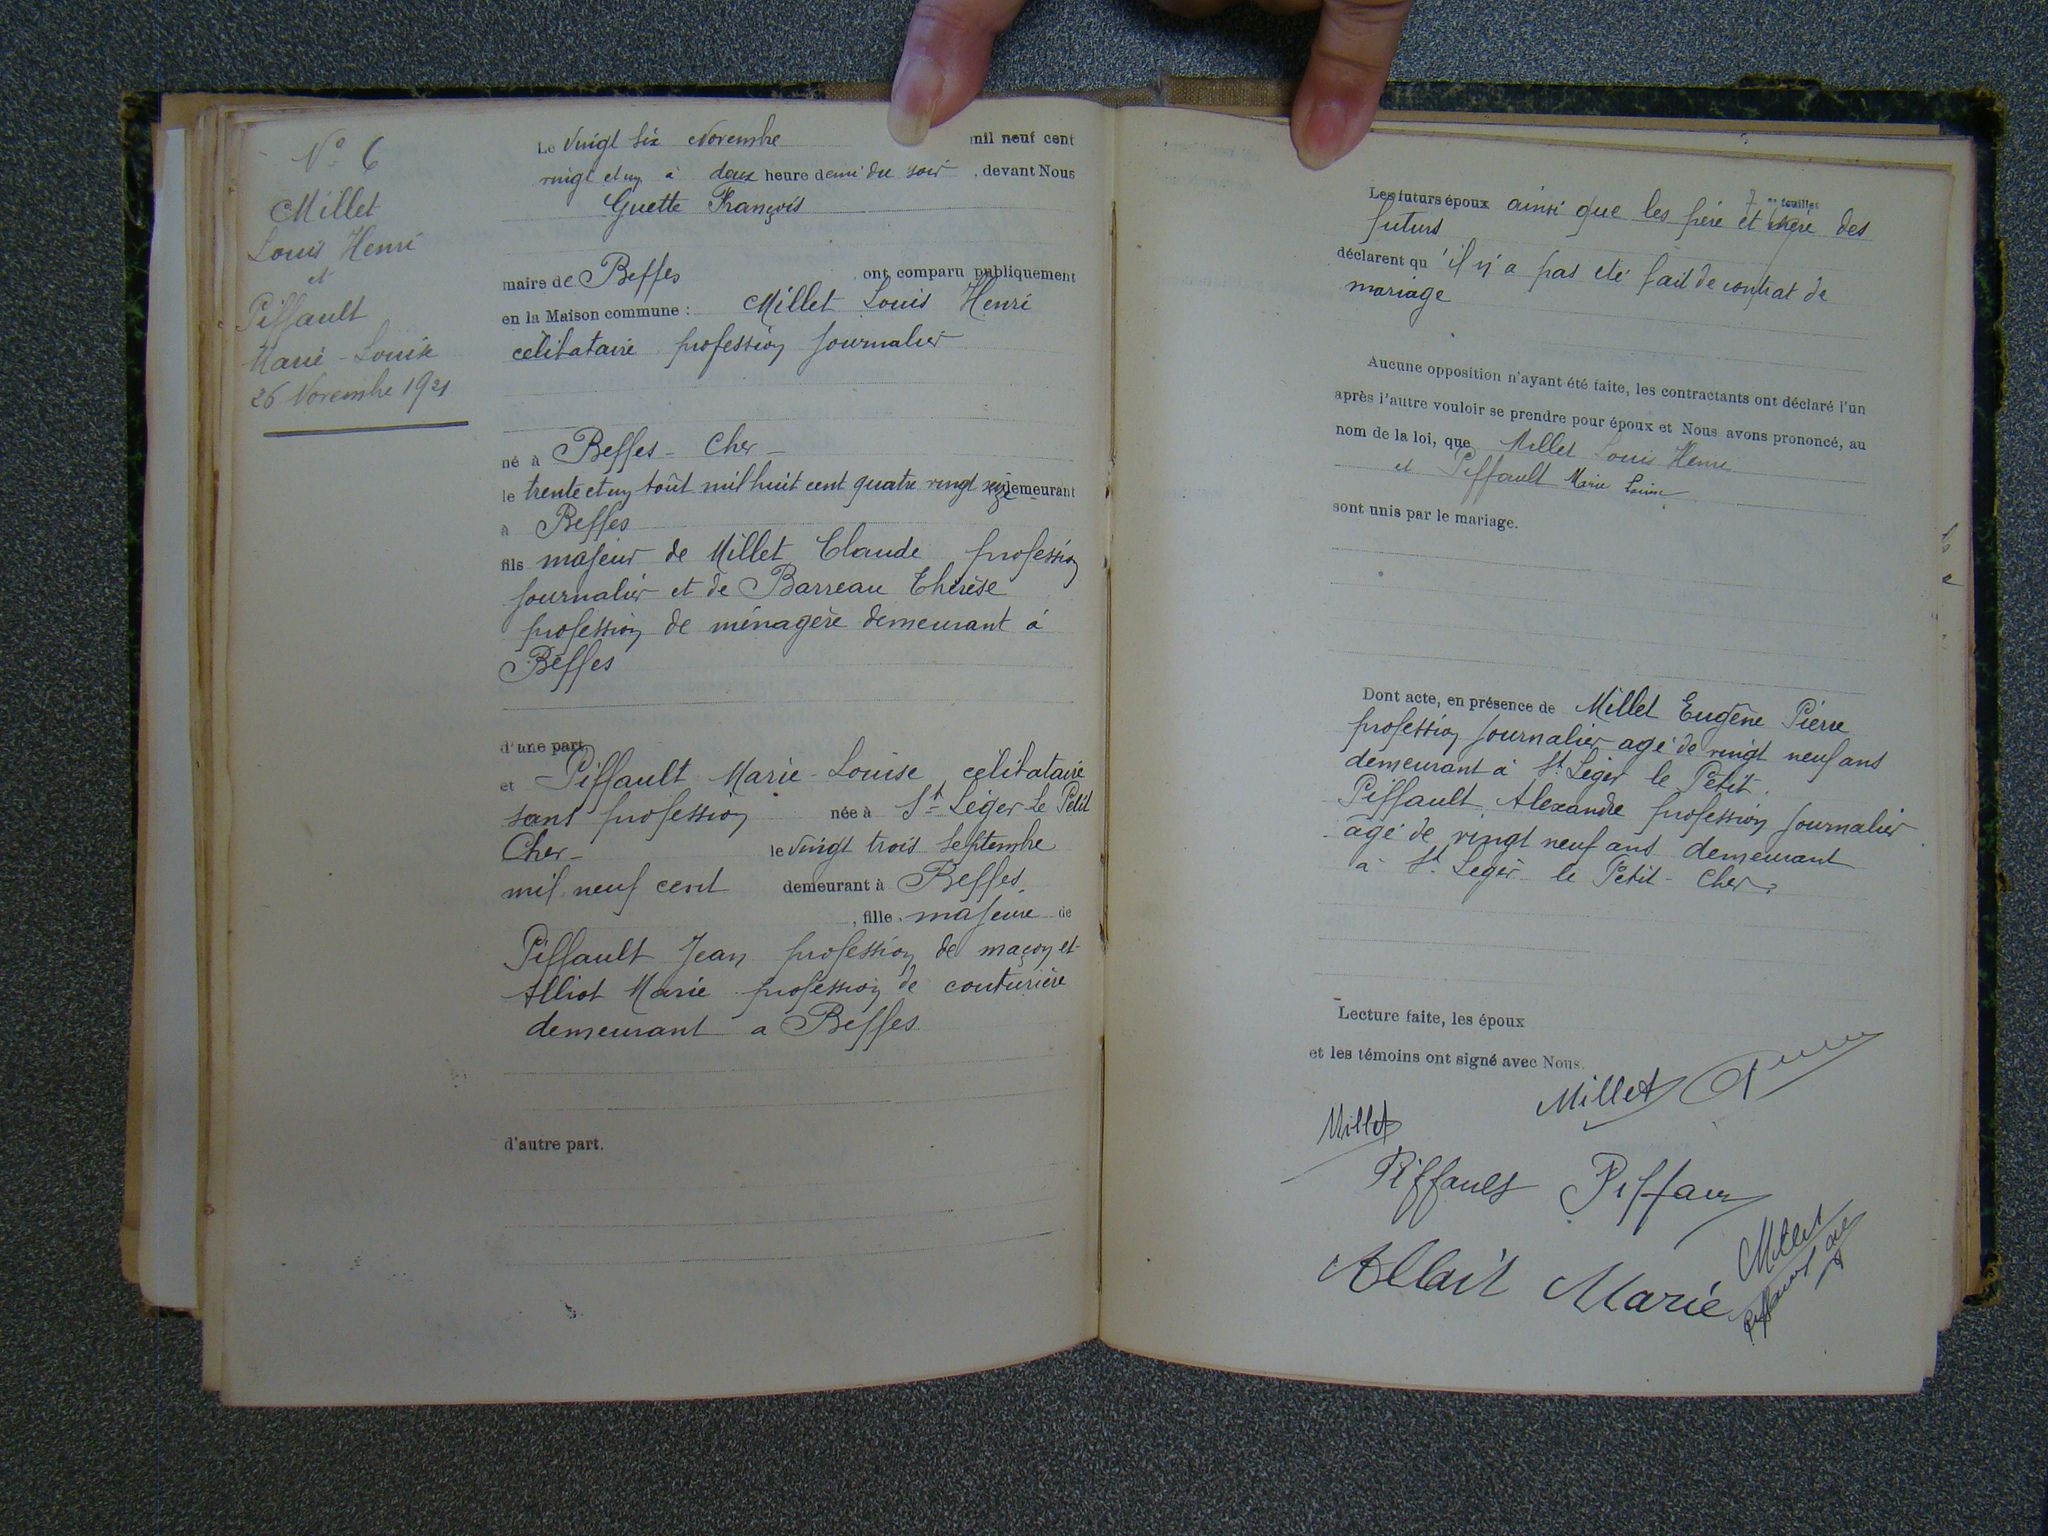 N° 6
Millet
Louis Henri
et
Piffault
Marie-Louise
26 Novembre 1921
Le vingt six Novembre mil neuf cent
vingt et un à deux heure demi du soir, devant Nous
Guette François
maire de Beffes ont comparu publiquement
en la Maison commune : Millet Louis Henri
célibataire profession journalier
né à Beffes - Cher -
le trente et un août mil huit cent quatre vingt seize demeurant
à Beffes
fils majeur de Millet Claude profession
journalier et de Barreau Thérèse
profession de ménagère demeurant à
Beffes
d'une part
et Piffault Marie-Louise célibataire
sans profession née à St Léger-Le Petit
Cher - le vingt trois septembre
mil neuf cent demeurant à Beffes
, fille majeure de
Piffault Jean profession de maçon et
Alliot Marie profession de couturière
demeurant a Beffes
d'autre part.
7me feuillet
Les futurs époux ainsi que les père et mère des
futurs
déclarent qu'il n'a pas été fait de contrat de
mariage
Aucune opposition n'ayant été faite, les contractants ont déclaré l'un
après l'autre vouloir se prendre pour époux et Nous avons prononcé, au
nom de la loi, que Millet Louis Henri
et Piffault Marie Louise
sont unis par le mariage.
Dont acte, en présence de Millet Eugène Pierre
profession journalier agé de vingt neuf ans
demeurant à St Léger le Petit.
Piffault Alexandre profession journalier
agé de vingt neuf ans demeurant
à St Léger le Petit - Cher.
Lecture faite, les époux
et les témoins ont signé avec Nous.
Millet
Millet
Piffault Piffau
Millet
Allait Marie